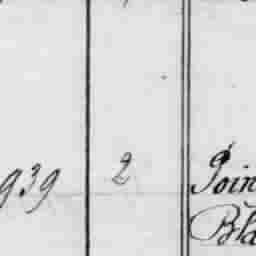 939 2 Join
Bla